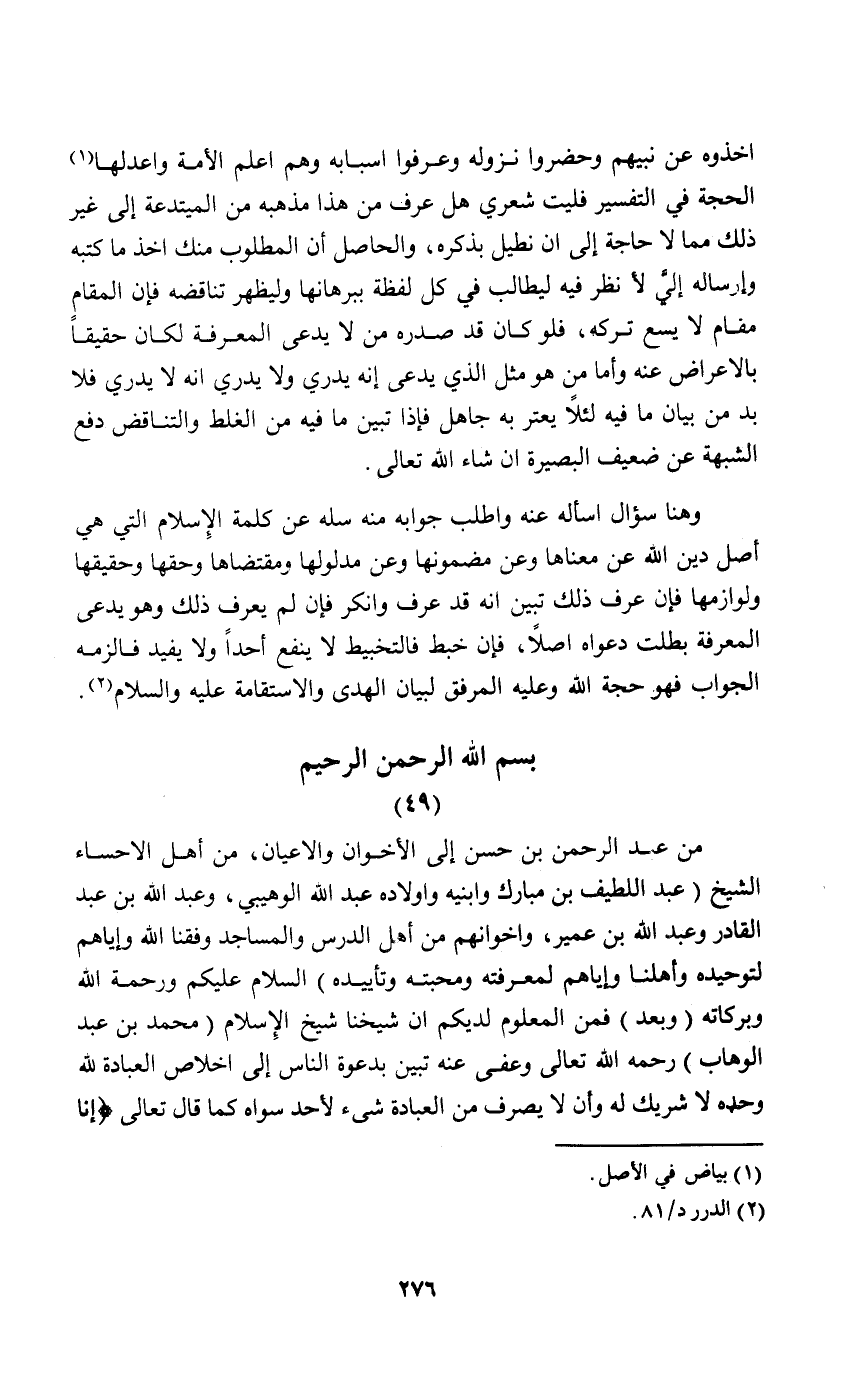 اخذوه عن نبيهم وحضروا نـزوله وعـرفوا اسبابه وهم اعلم الأمـة واعدلهـا(١)
الحجة في التفسير فليت شعري هل عرف من هذا مذهبه من المبتدعة إلى غير
ذلك مما لا حاجة إلى ان نطيل بذكره، والحاصل أن المطلوب منك اخذ ما كتبه
وإرساله إليَّ لأ نظر فيه ليطالب في كل لفظة ببرهانها وليظهر تناقضه فإن المقام
مقـام لا يسع تـركه، فلو كـان قد صـدره من لا يدعى المعـرفـة لكـان حقيقـاً
بالاعراض عنه وأما من هو مثل الذي يدعى إنه يدري ولا يدري انه لا يدري فلا
بد من بيان ما فيه لئلاً يعتر به جاهل فإذا تبين ما فيه من الغلط والتنـاقض دفع
الشبهة عن ضعيف البصيرة ان شاء الله تعالى.
وهنا سؤال اسأله عنه واطلب جوابه منه سله عن كلمة الإسلام التي هي
أصل دين الله عن معناها وعن مضمونها وعن مدلولها ومقتضاها وحقها وحقيقها
ولوازمها فإن عرف ذلك تبين انه قد عرف وانكر فإن لم يعرف ذلك وهو يدعى
المعرفة بطلت دعواه اصلاً، فإن خبط فالتخبيط لا ينفع أحداً ولا يفيد فـالزمـه
الجواب فهو حجة الله وعليه المرفق لبيان الهدى والاستقامة عليه والسلام(٢).
بسم الله الرحمن الرحيم
(٤٩)
من عبـد الرحمن بن حسن إلى الأخـوان والاعيان، من أهـل الاحسـاء
الشيخ ( عبد اللطيف بن مبارك وابنيه واولاده عبد الله الوهيبي، وعبد الله بن عبد
القادر وعبد الله بن عمير، واخوانهم من أهل الدرس والمساجد وفقنا الله وإياهم
لتوحيده وأهلنـا وإياهم لمعـرفته ومحبتـه وتأييـده ) السلام عليكم ورحمـة الله
وبركاته ( وبعد ) فمن المعلوم لديكم ان شيخنا شيخ الإسلام ( محمد بن عبد
الوهاب ) رحمه الله تعالى وعفـى عنه تبين بدعوة الناس إلى اخلاص العبادة لله
وحده لا شريك له وأن لا يصرف من العبادة شىء لأحد سواه كما قال تعالى ﴿إنا
(١) بياض في الأصل.
(٢) الدرر د/٨١.
٢٧٦